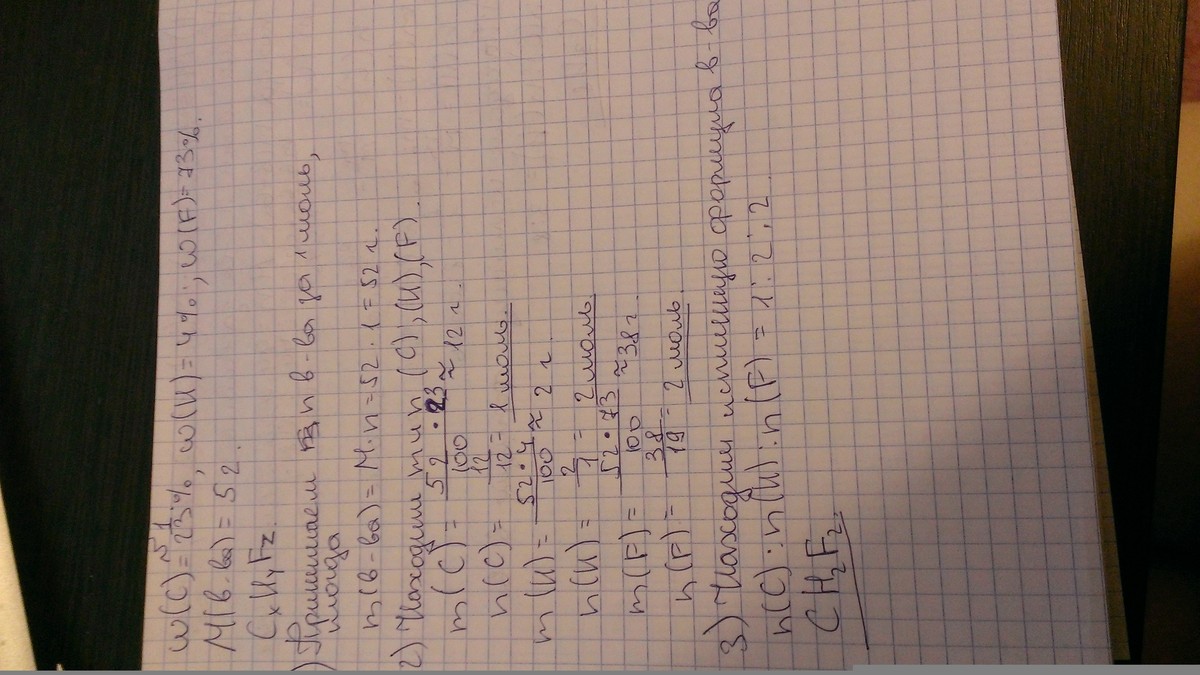 w(C)=23,1%, w(H)=4%; w(F)=73%.
M(в-ва)=52.
CxHyFz.
) Принимаем n в-ва за 1 моль,
тогда
m(в-ва)=M·n=52·1=52 г.
2) Находим m и n (C),(H),(F).
m(C)= 52·23/100 ≈12 г.
n(C)= 12/12= 1 моль.
m(H)= 52·4/100 ≈ 2 г.
n(H)= 2/1= 2 моль.
m(F)= 52·73/100 ≈38г.
n(F)= 38/19= 2 моль.
3) Находим истинную формула в-ва
n(C):n(H):n(F)=1:2:2
CH₂F₂.